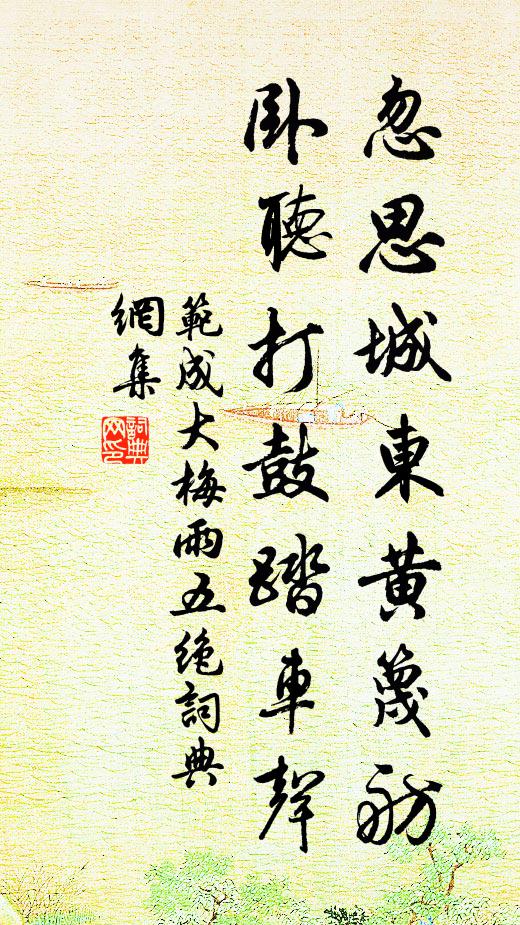 忽思城東黃篾舫
臥聽打鼓踏車聲
範成大梅雨五絕詞典
網集
詞典
网印